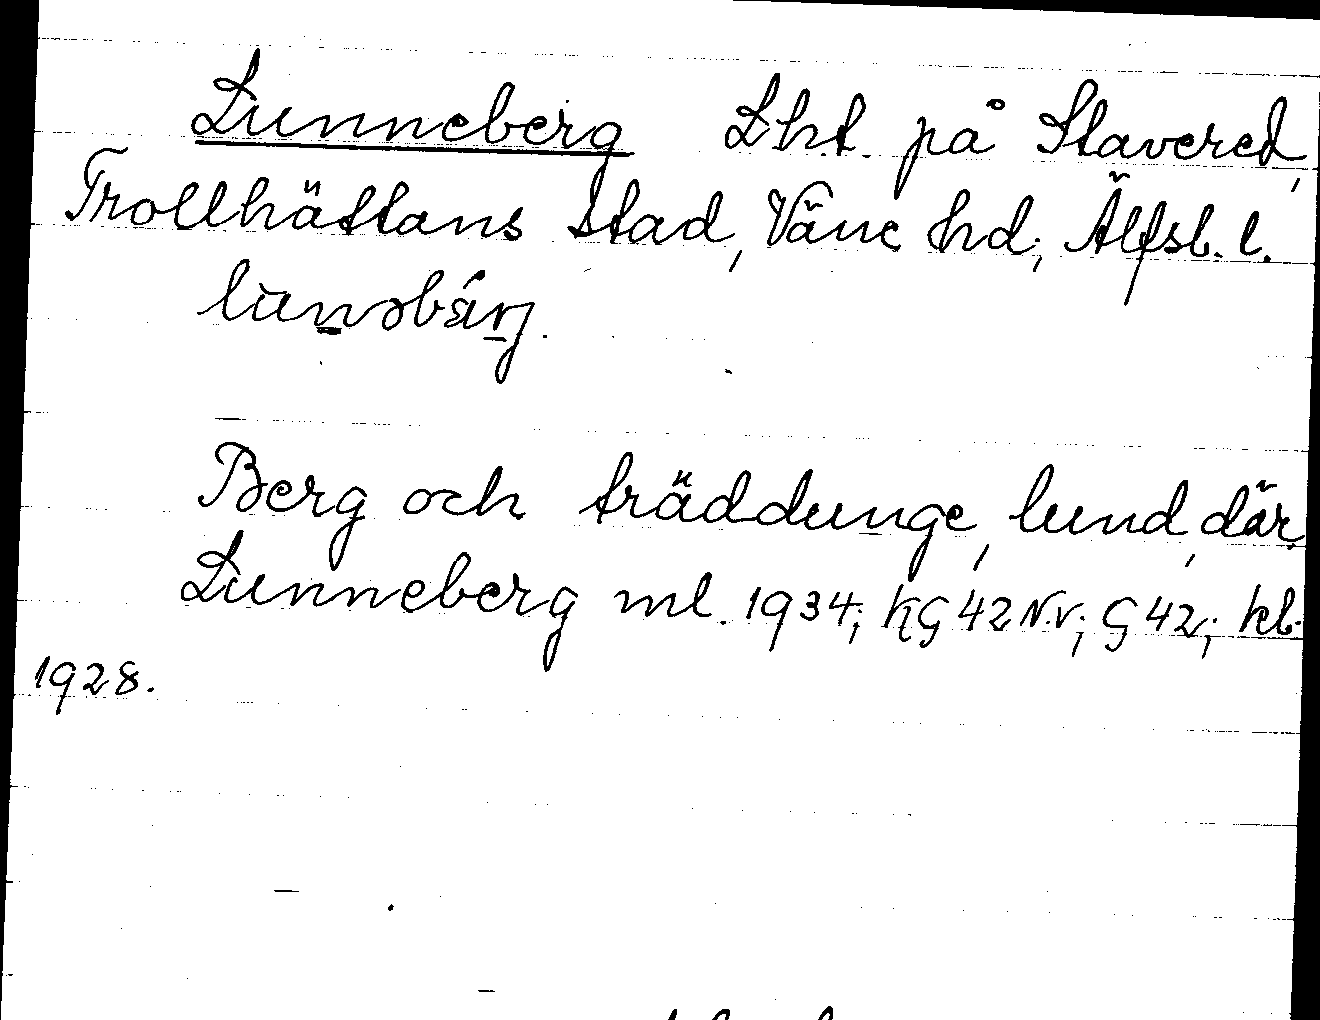 Lunneberg Lht. på Stavered,
Trollhättans stad, Väne hd, Älfsb. l.
Berg och träddunge, lund, där
Lunneberg ml. 1934; KG 42 N.V; G 42; kl.
1928.